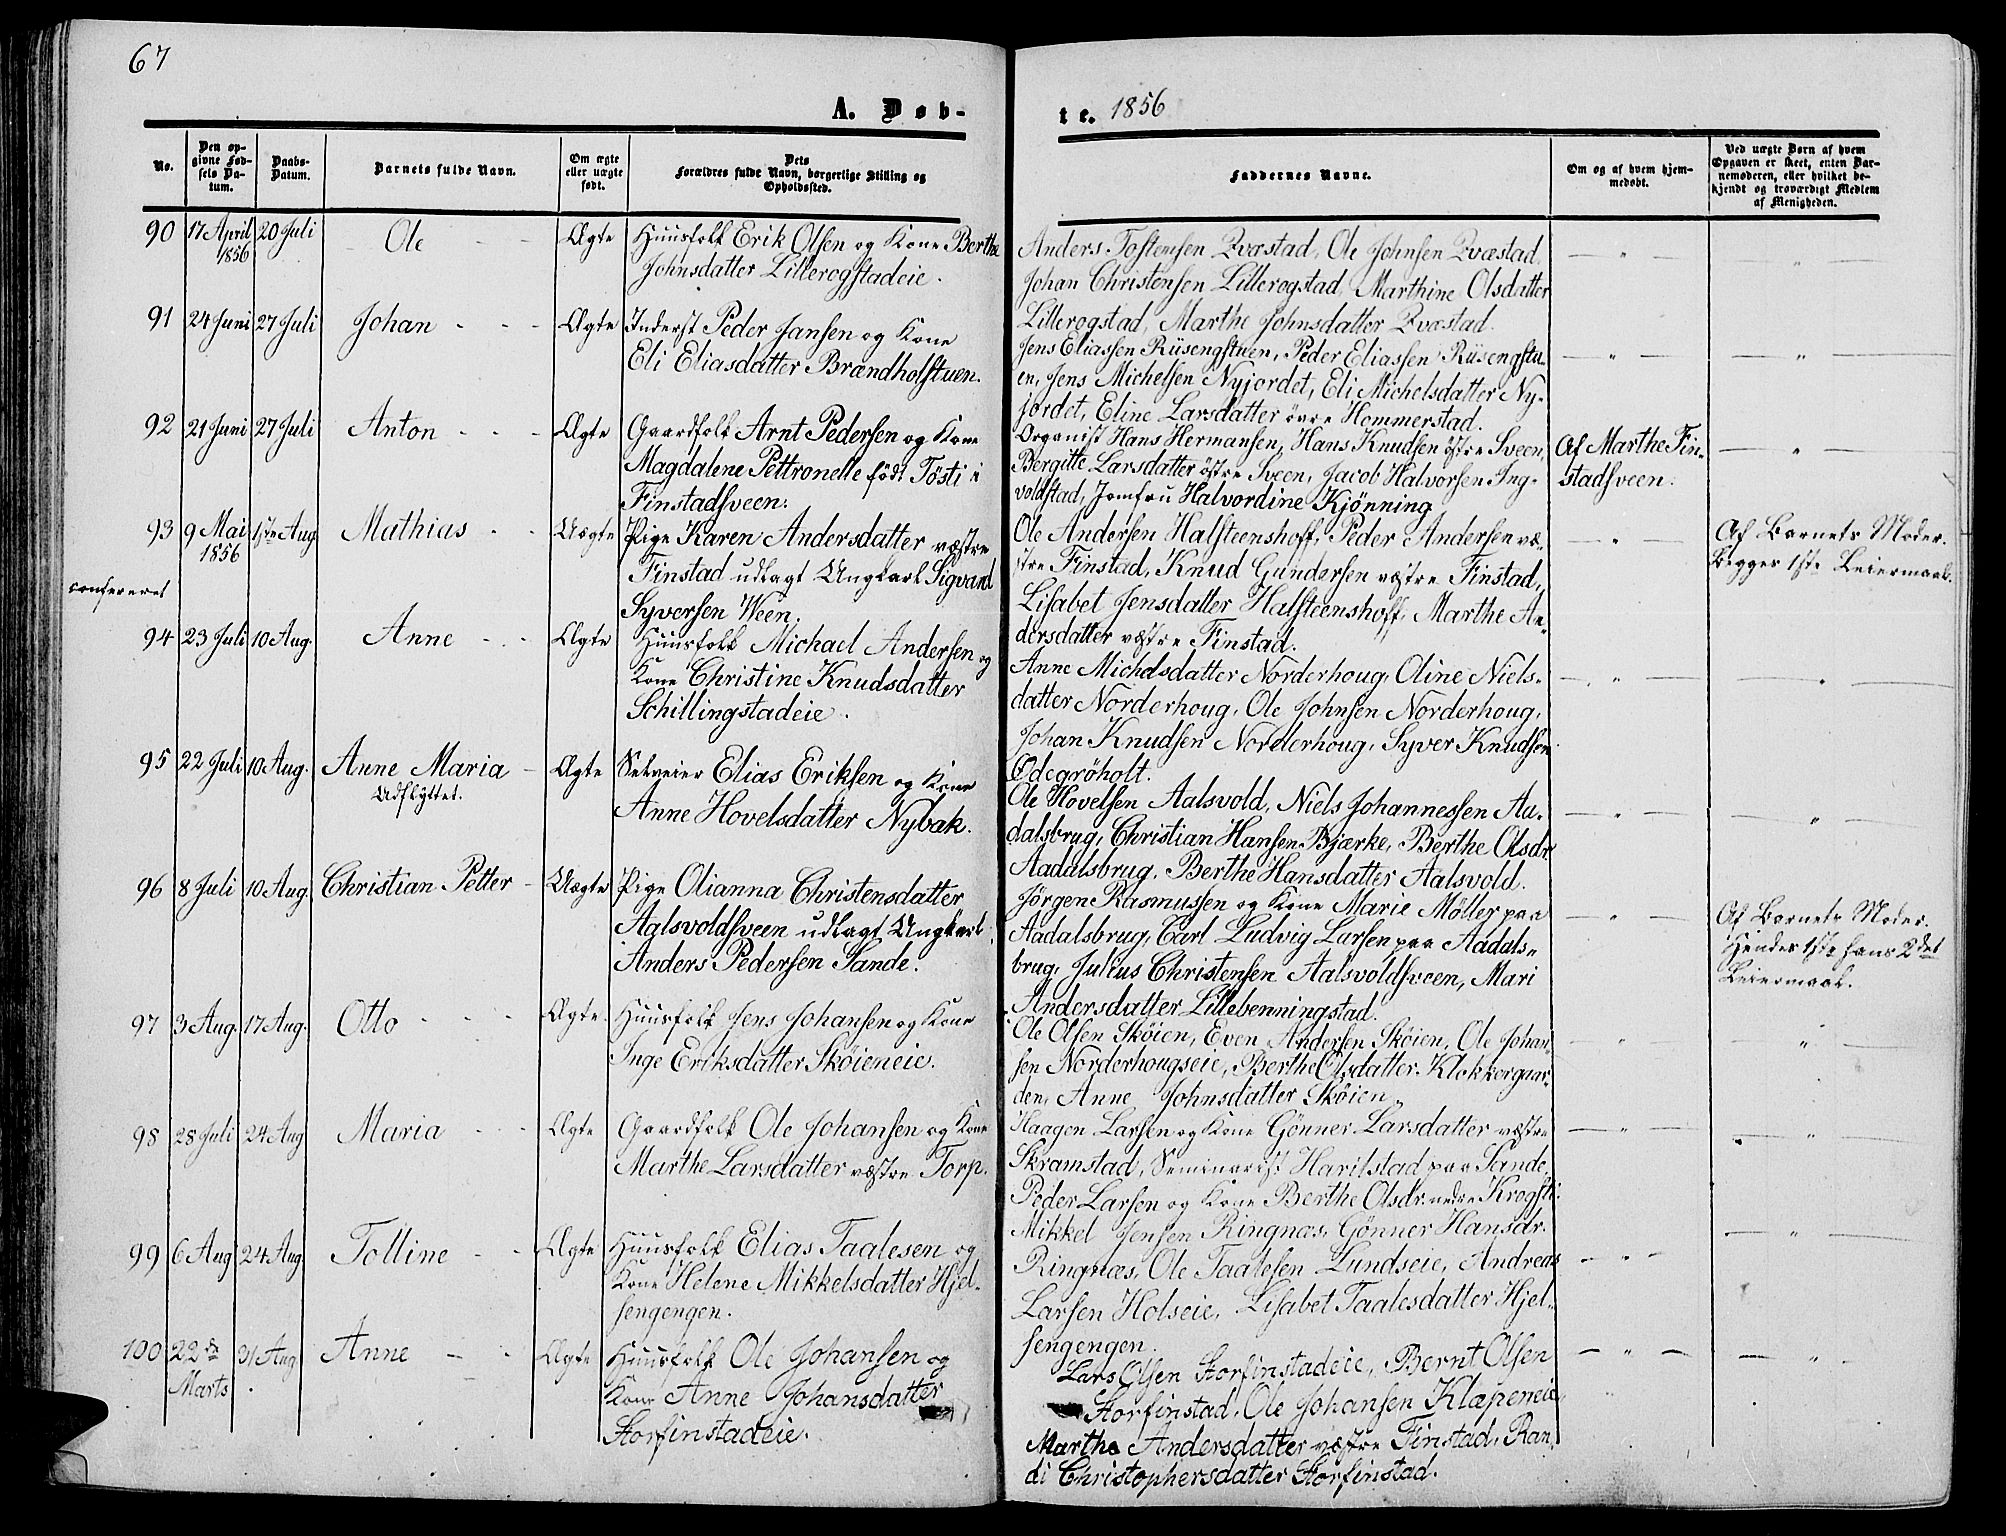 67
A. Døb-
te. 1856
No.
Den op-
givne Fød-
sels Da-
tum.
Daabs-
Datum.
Barnets fulde Navn.
Om ægte
eller uægte
født.
Dets
Forældres fulde Navn, borgerlige Stilling og
Opholdssted.
Faddernes Navne.
Om og af hvem hjem-
medøbt.
Ved uægte Børn af hvem
Opgaven er skeet, enten Bar-
nemoderen, eller hvilket be-
kjendt og troværdigt Medlem
af Menigheden.
90 17 April 20 Juli Ole Ægte Huusfolk Erik Olsen og Kone Berthe
1856
Johnsdatter Lillerogstadeie.
Anders Tostensen Qvæstad, Ole Johnsen Qvæstad,
Johan Christensen Lillerogstad, Marthine Olsdatter
Lillerogstad, Marthe Johnsdatter Qvæstad.
91 24 Juni 27 Juli Johan Ægte Inderst Peder Jansen og Kone
Eli Eliasdatter Brændholstuen.
Jens Eliassen Rüsengstuen, Peder Eliassen Rüsengstu-
en, Jens Michelsen Nyjordet, Eli Michelsdatter Ny-
jordet, Eline Larsdatter övre Hommerstad.
92 21 Juni 27 Juli Anton Ægte Gaardfolk Arnt Pedersen og Kone
Magdalene Pettronelle födt Tösti i
Finstadsveen.
Organist Hans Hermansen, Hans Knudsen östre Sveen,
Bergitte Larsdatter östre Sveen, Jacob Halvorsen Ing-
voldstad, Jomfru Halvordine Kjönning
Af Marthe Fin-
stadsveen.
93 9 Mai 1ste Aug Mathias Uægte Pige Karen Andersdatter væstre
1856
Finstad udlagt Ungkarl Sigvard
Syversen Ween.
confereret
Ole Andersen Halsteenshoff, Peder Andersen væ-
stre Finstad, Knud Gundersen væstre Finstad,
Lisabet Jensdatter Halsteenshoff, Marthe An-
dersdatter væstre Finstad.
Af Barnets Moder.
Begges 1ste Leiermaal.
94 23 Juli 10 Aug. Anne Ægte Huusfolk Michael Andersen og
Kone Christine Knudsdatter
Schillingstadeie.
Anne Michelsdatter Norderhoug, Oline Niels-
datter Norderhoug, Ole Johnsen Norderhoug,
Johan Knudsen Norderhoug, Syver Knudsen
Ödegröholt.
95 22 Juli 10 Aug. Anne Maria Ægte Selveier Elias Eriksen og Kone
Udflyttet.
Anne Hovelsdatter Nybak.
Ole Hovelsen Aalsvold, Niels Johannessen Aa-
dalsbrug, Christian Hansen Bjærke, Berthe Olsdr
Aadalsbrug, Berthe Hansdatter Aalsvold.
96 8 Juli 10 Aug. Christian Petter Uægte Pige Olianna Christensdatter
Aalsvoldsveen udlagt Ungkarl
Anders Pedersen Sande.
Jörgen Rasmussen og Kone Marie Möller paa
Aadalsbrug, Carl Ludvig Larsen paa Aadals-
brug, Julius Christensen Aalsvoldsveen, Mari
Andersdatter Lillebenningstad.
Af Barnets Moder.
Hendes 1ste hans 2det
Leiermaal.
97 3 Aug. 17 Aug. Otto Ægte. Huusfolk Jens Johansen og Kone
Inge Eriksdatter Sköieneie.
Ole Olsen Sköien, Even Andersen Sköien, Ole Johan-
sen Norderhougseie, Berthe Olsdatter Klokkergaar-
den, Anne Johnsdatter Sköien.
98 28 Juli 24 Aug Maria Ægte Gaardfolk Ole Johansen og Kone
Marthe Larsdatter væstre Torp.
Haagen Larsen og Kone Gönner Larsdatter væstre
Skramstad, Seminarist Harilstad paa Sande,
Peder Larsen og Kone Berthe Olsdr. nedre Krogsti.
99 6 Aug 24 Aug Tolline Ægte Huusfolk Elias Taalesen og
Kone Helene Mikkelsdatter Hjel-
sengengen.
Mikkel Jensen Ringnæs, Gönner Hansdr.
Ringnæs, Ole Taalesen Lundseie, Andreas
Larsen Holseie, Lisabet Taalesdatter Hjel-
sengengen.
100 22de 31 Aug Anne Ægte Huusfolk Ole Johansen og
Marts
Kone Anne Johansdatter
Storfinstadeie.
Lars Olsen Storfinstadeie, Bernt Olsen
Storfinstad, Ole Johansen Klæpeneie,
Marthe Andersdatter væstre Finstad, Ran-
di Christophersdatter Storfinstad.